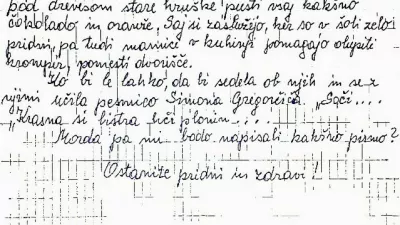 pod drevesom stare hruške pusti vsaj kakšno
čokolado in oranže, Saj si zaslužejo, ker so v šoli zelo
pridni, pa tudi mamici v kuhinji pomagajo olupiti
krompir, pomesti dvorišče.
Ko bi le lahko, da bi sedela ob njih in se z
njimi učila pesmico Simona Gregorčiča „Soči....
„Krasna si bistra hči planin....
Morda pa mi bodo napisali kakšno pismo?
Ostanite pridni in zdravi!